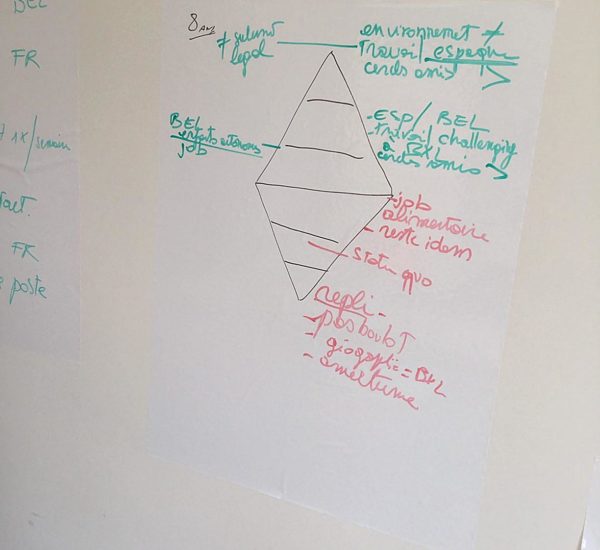 BEL
FR
1x/semain
FR
poste
8 ANS
environnemet ≠
travail espagne
cercls amis
legal
- ESP/ BEL
- travail challenging
à BXL
cercls amis
BEL
enfants autonomes
job
- job
alimentaire
- reste idem
statu quo
repli -
- pas boulot
- géographie = BEL
- amertume